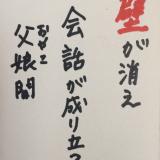 壁が消え
会話が成り立つ
おやこ
父娘間